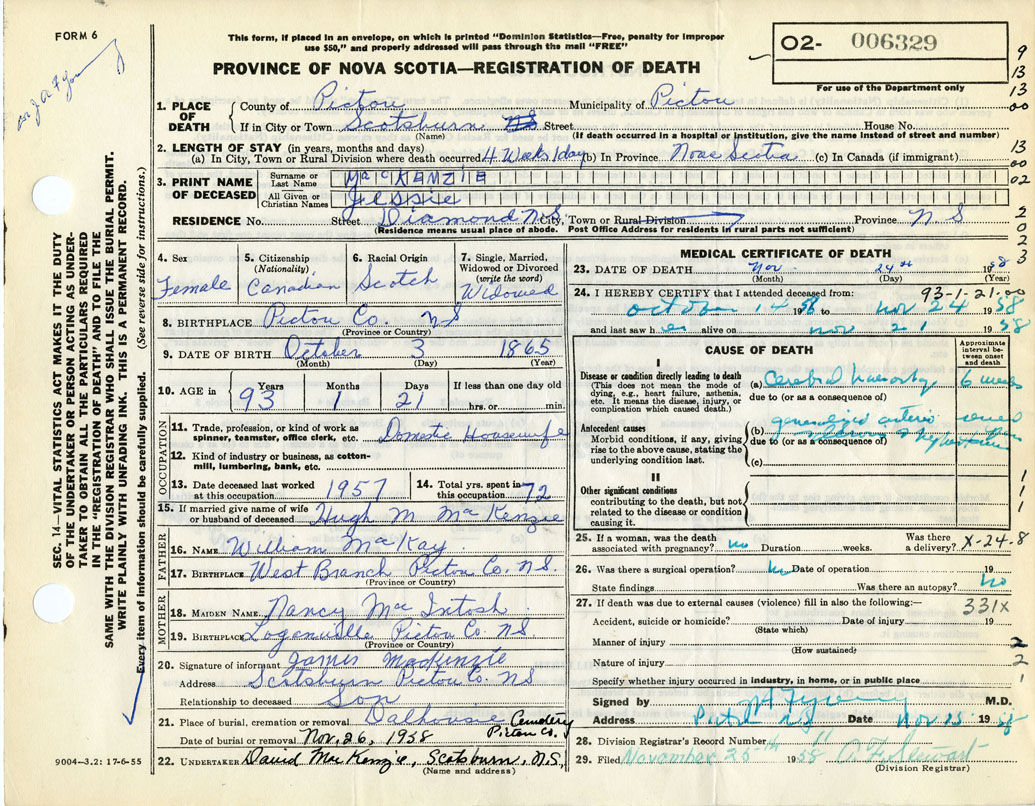 FORM 6
This form, if placed in an envelope, on which is printed "Dominion Statistics—Free, penalty for improper
use $50," and properly addressed will pass through the mail "FREE"
PROVINCE OF NOVA SCOTIA—REGISTRATION OF DEATH
02- 006329
For use of the Department only
9
13
13
00
1. PLACE OF DEATH County of Pictou Municipality of Pictou
If in City or Town Scotsburn NS Street House No.
(Name) (If death occurred in a hospital or institution, give the name instead of street and number)
2. LENGTH OF STAY (in years, months and days)
(a) In City, Town or Rural Division where death occurred 4 Weeks 1 day (b) In Province Nova Scotia (c) In Canada (if immigrant)
13
00
02
3. PRINT NAME OF DECEASED Surname or Last Name MacKENZIE
All Given or Christian Names Jessie
RESIDENCE No. Street Diamond N S City, Town or Rural Division Province N S
(Residence means usual place of abode. Post Office Address for residents in rural parts not sufficient)
2
0
2
2
3
4. Sex Female
5. Citizenship (Nationality) Canadian
6. Racial Origin Scotch
7. Single, Married, Widowed or Divorced (write the word) Widowed
8. BIRTHPLACE Pictou Co. NS
(Province or Country)
9. DATE OF BIRTH October 3 1865
(Month) (Day) (Year)
10. AGE in 93 Years 1 Months 21 Days If less than one day old hrs. or min.
OCCUPATION
11. Trade, profession, or kind of work as spinner, teamster, office clerk, etc. Domestic Housewife
12. Kind of industry or business, as cotton-mill, lumbering, bank, etc.
13. Date deceased last worked at this occupation 1957
14. Total yrs. spent in this occupation 72
15. If married give name of wife or husband of deceased Hugh M MacKenzie
FATHER
16. NAME William MacKay
17. BIRTHPLACE West Branch Pictou Co. N.S.
(Province or Country)
MOTHER
18. MAIDEN NAME Nancy MacIntosh
19. BIRTHPLACE Loganville Pictou Co. NS.
(Province or Country)
20. Signature of informant James MacKenzie
Address Scotsburn Pictou Co. NS
Relationship to deceased Son
21. Place of burial, cremation or removal Dalhousie Cemetery
Pictou Co.
Date of burial or removal Nov. 26, 1958
22. UNDERTAKER David MacKenzie, Scotsburn, N.S.,
(Name and address)
MEDICAL CERTIFICATE OF DEATH
23. DATE OF DEATH Nov. 24th 1958
(Month) (Day) (Year)
93-1-21.00
24. I HEREBY CERTIFY that I attended deceased from:
October 14 58 to Nov 24 1958
and last saw h er alive on Nov 21 1958
CAUSE OF DEATH
Approximate interval between onset and death
I
Disease or condition directly leading to death
(This does not mean the mode of dying, e.g., heart failure, asthenia, etc. It means the disease, injury, or complication which caused death.)
(a) Cerebral 6 weeks
due to (or as a consequence of)
Antecedent causes
Morbid conditions, if any, giving rise to the above cause, stating the underlying condition last.
(b) generalized arterio
due to (or as a consequence of)
(c)
II
Other significant conditions
contributing to the death, but not related to the disease or condition causing it.
1
1
1
25. If a woman, was the death associated with pregnancy? no Duration weeks. Was there a delivery?
X-24.8
26. Was there a surgical operation? no Date of operation 19
State findings Was there an autopsy? no
27. If death was due to external causes (violence) fill in also the following:— 331X
Accident, suicide or homicide? Date of injury 19
(State which)
Manner of injury
(How sustained)
Nature of injury
Specify whether injury occurred in industry, in home, or in public place
2
2
1
Signed by M.D.
Address Pictou NS Date Nov 25 1958
28. Division Registrar's Record Number
29. Filed November 25th 1958
(Division Registrar)
SEC. 14—VITAL STATISTICS ACT MAKES IT THE DUTY
OF THE UNDERTAKER OR PERSON ACTING AS UNDER-
TAKER TO OBTAIN ALL THE PARTICULARS REQUIRED
IN THE "REGISTRATION OF DEATH" AND TO FILE THE
SAME WITH THE DIVISION REGISTRAR WHO SHALL ISSUE THE BURIAL PERMIT.
WRITE PLAINLY WITH UNFADING INK. THIS IS A PERMANENT RECORD.
Every item of information should be carefully supplied. (See reverse side for instructions.)
9004—3.2: 17-6-55